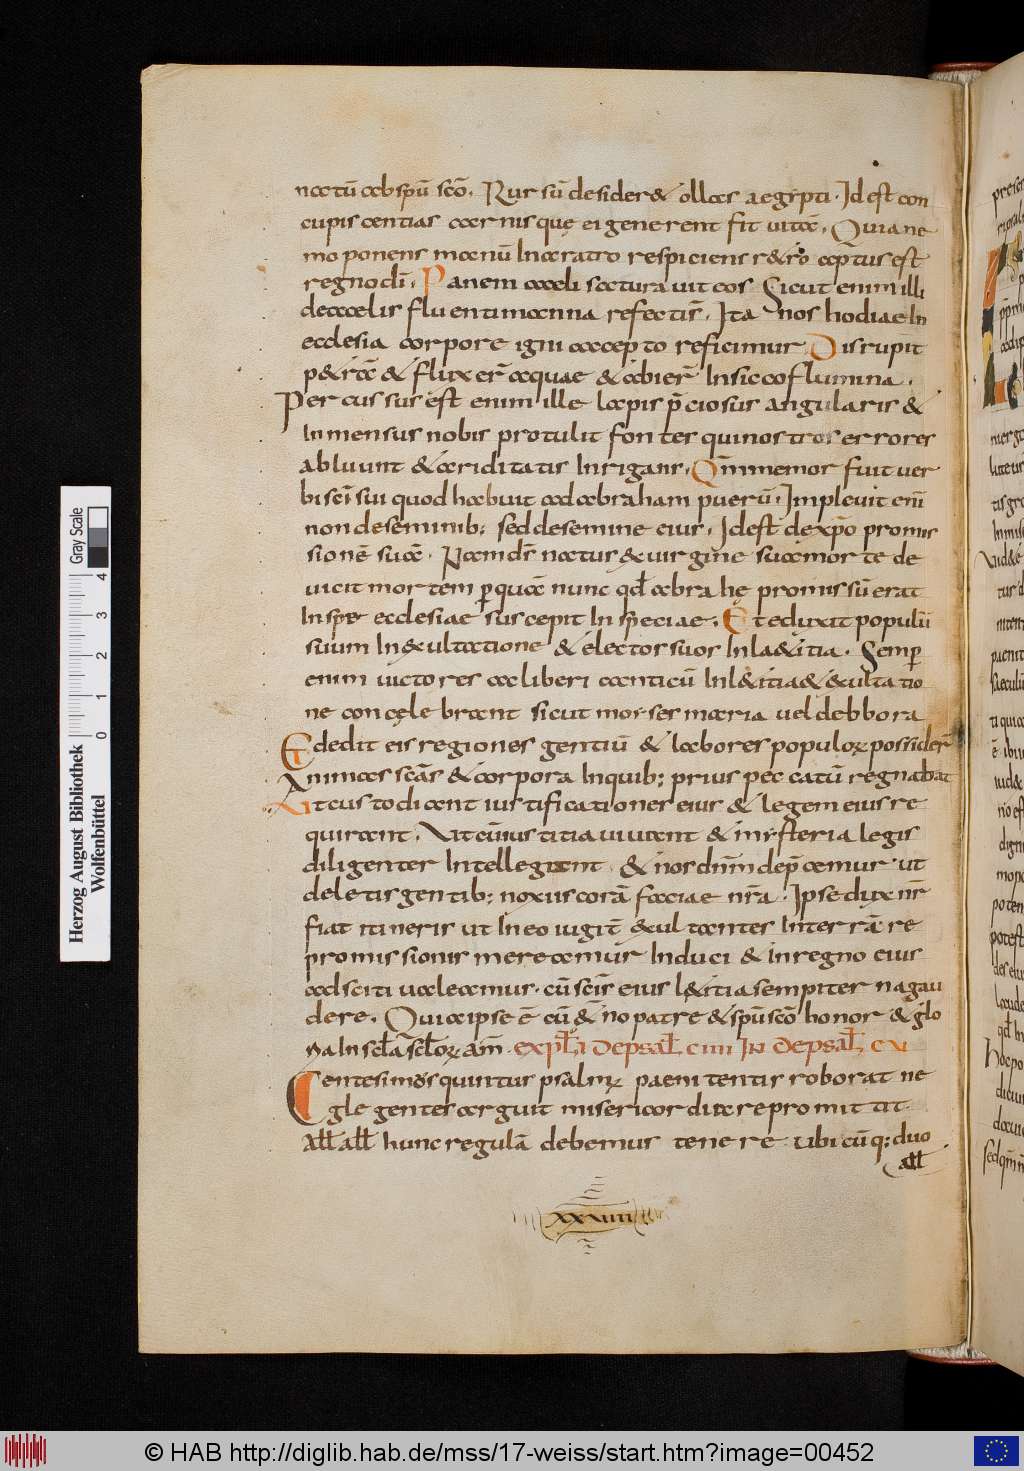 natū ab spū scō. Rursū desider& ollas aegypti. Id est con
cupiscentias carnisque ei generent fit uitā. Quia ne
mo ponens manū In aratro respiciens r&ro aptus est
regno dī. Panem caeli saturauit eos Sicut enim illi
de caelis fluenti manna refectis. Ita nos hodiae In
ecclesia corpore igni accepto reficimur Disrupit
p&rā & fluxer̄ aquae & abier̄ In sicco flumina.
Percussus est enim ille lapis p̄ciosus angularis &
Inmensus nobis protulit fontes qui nostros errores
abluunt & ariditatis Inrigans. Qm̄ memor fuit uer
bi sc̄i sui quod habuit ad abraham puerū. Impleuit enī
non deseminib; sed desemine eius. Id est dexp̄o promis
sionē suā. Nam dn̄s natus & uirgine sua morte de
uicit mortem p quā nunc qd abrahę promissū erat
In spe ecclesiae suscepit In speciae. Et eduxit populū
suum In &ultatione & electos suos In la&itia. Semp
enim uictores ac liberi canticū In l&itia & &ultatio
ne concęlebrant sicut moyses maria uel debbora
Et dedit eis regiones gentiū & labores populoꝝ possider̄
Animas scās & corpora In quib; prius peccatū regnabat
Ut custodicent iustificationes eius & legem eius re
quirant. Ut cū iustitia uiuant & mysteria legis
diligenter Intellegant & nos dn̄m dep̄camur ut
deletis gentib; noxus corā faciae nr̄a. Ipse dux nr̄
fiat itineris ut In eo uigit̄ &ultantes In terrā re
promissionis mereamur Induci & in regno eius
adsciti ualeamur. cū scīs eius l&itia sempiterna gau
dere. Qui aipse ē cū & no patre & spū scō honor & glo
ria In scła scłoꝝ am̄. expł dep̄sał c iiii IN dep̄sał c v
Centesimus quintus psalmꝰ paenitentis roborat ne
gle gentes arguit misericordia repromittit
ałł ałł hunc regulā debemus tenere ubi cū q; duo
ałł
xxviiii
Herzog August Bibliothek
Wolfenbüttel
0 1 2 3 4
Gray Scale
© HAB http://diglib.hab.de/mss/17-weiss/start.htm?image=00452